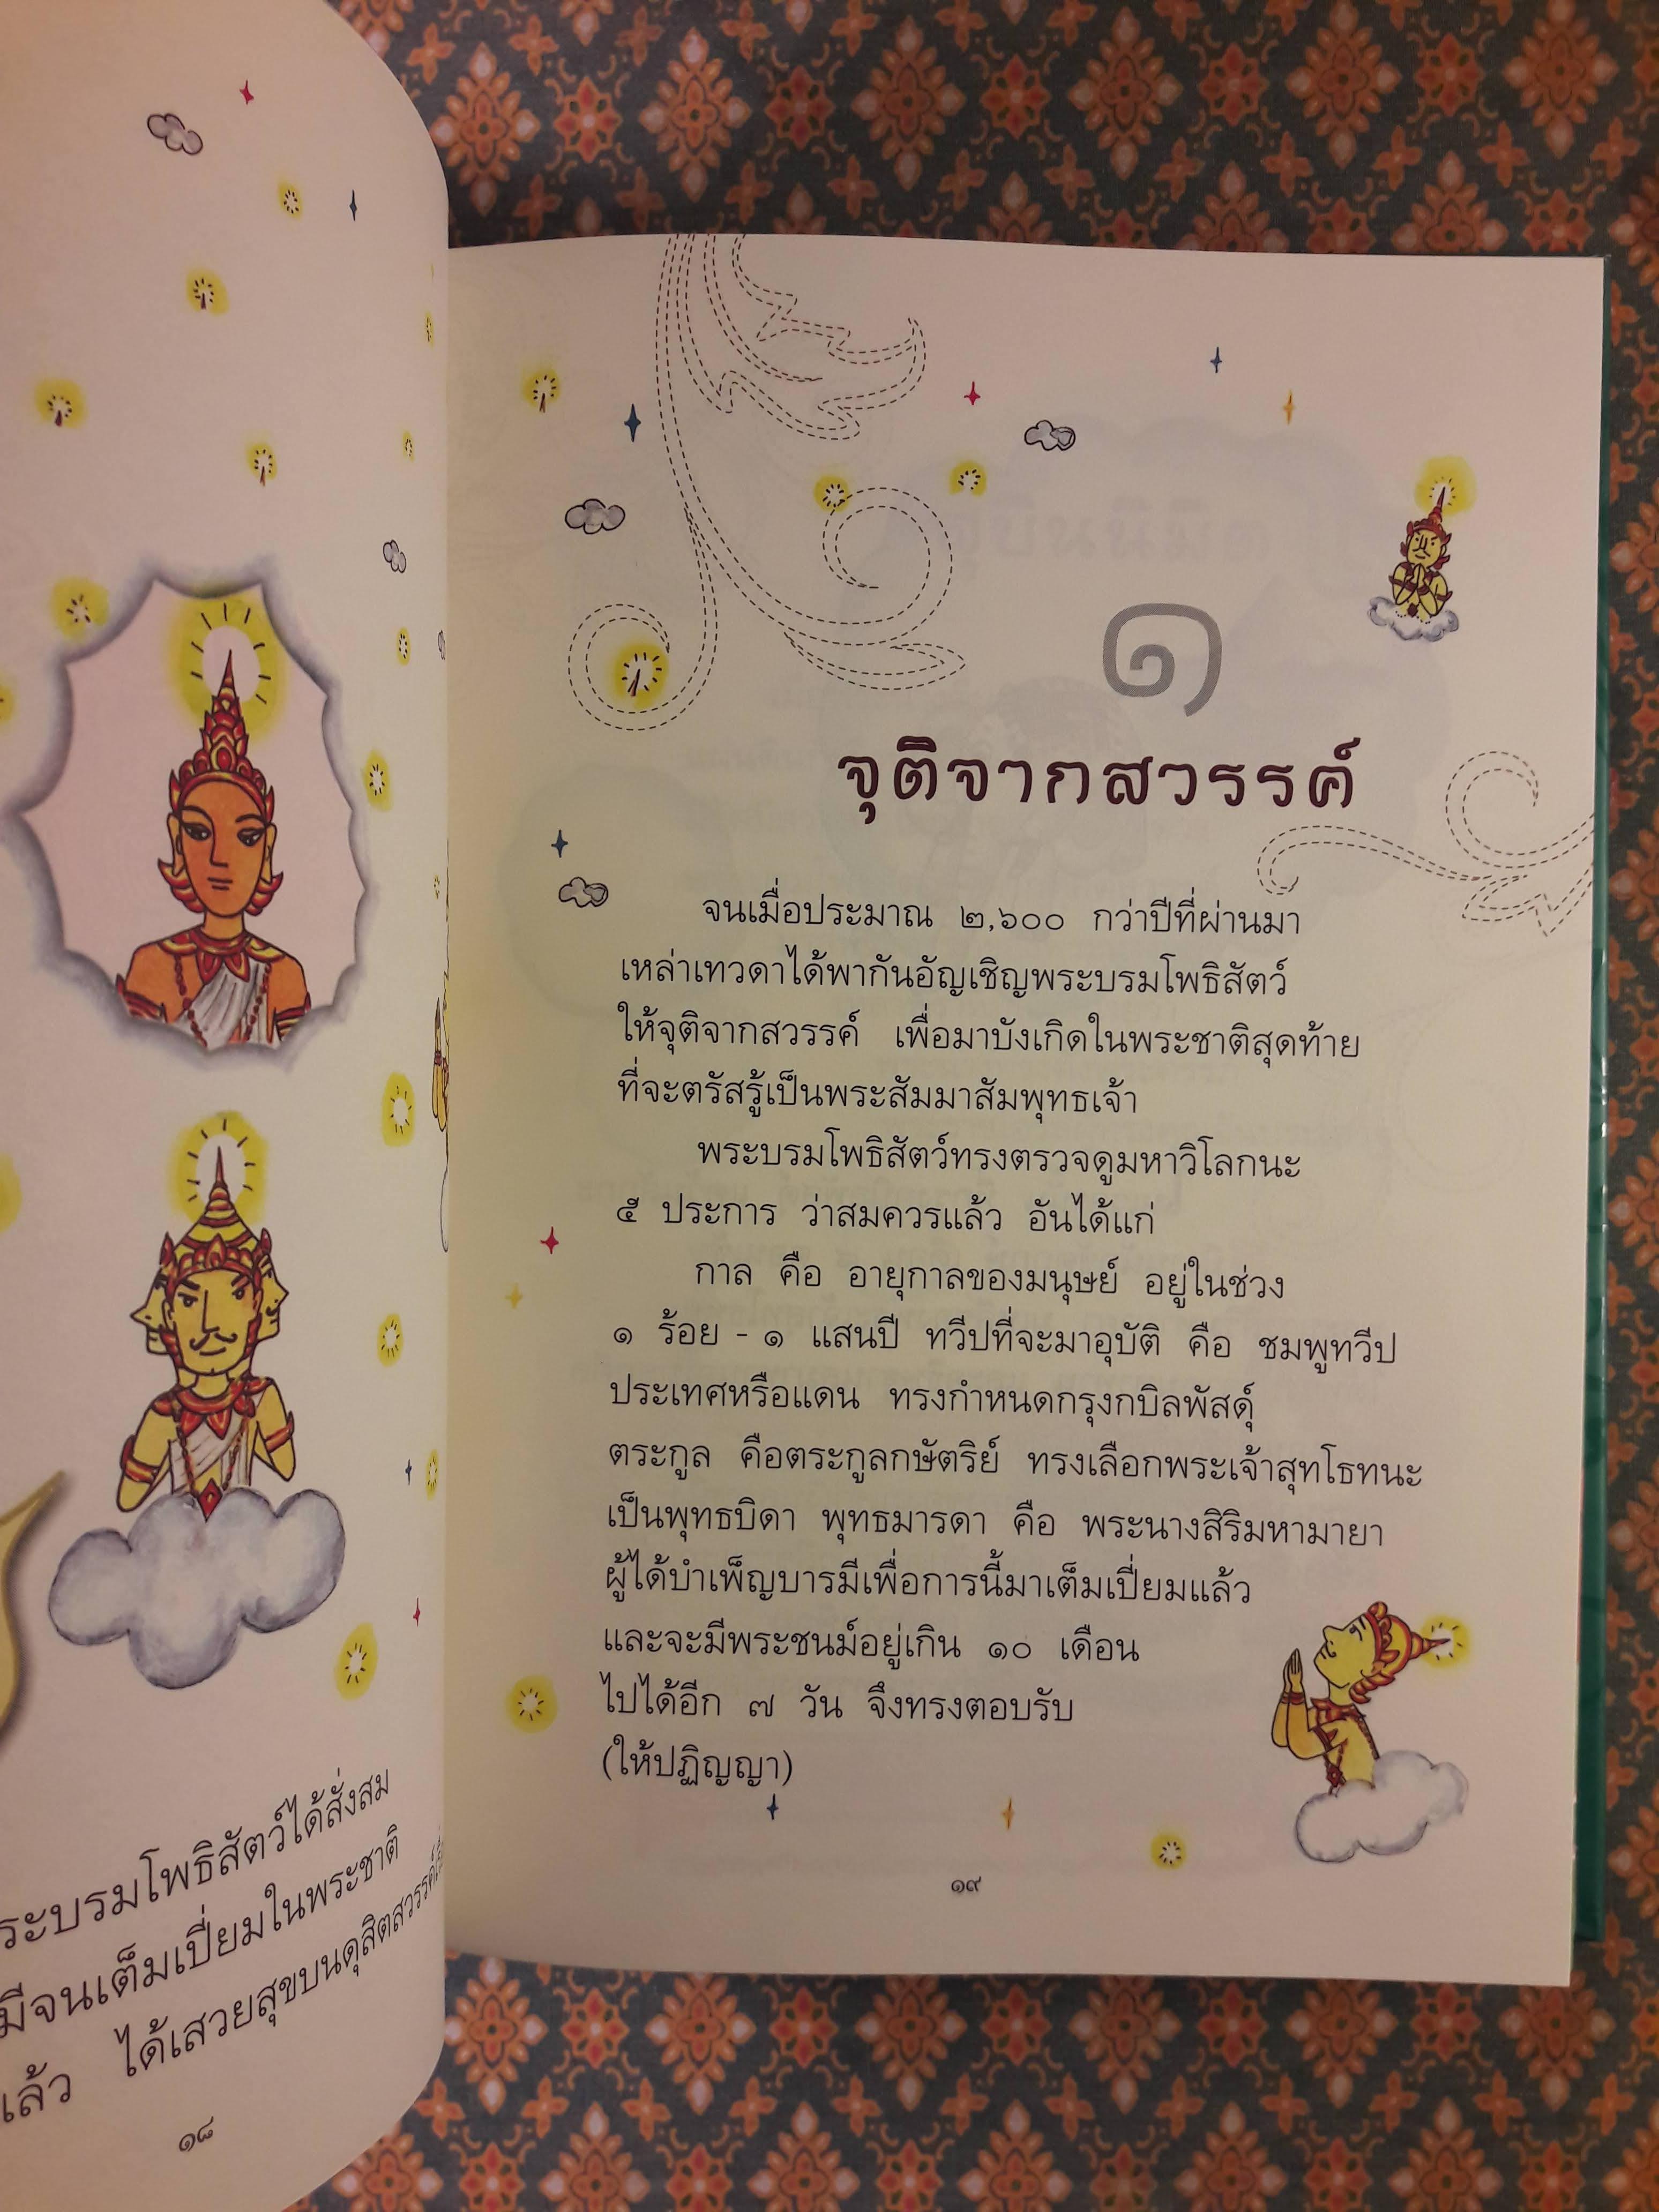 ระบรมโพธิสัตว์ได้สั่งสม
มีจนเต็มเปี่ยมในพระชาติ
แล้ว ได้เสวยสุขบนดุสิตสวรรค์
๑๘
๑
จุติจากสวรรค์
จนเมื่อประมาณ ๒,๖๐๐ กว่าปีที่ผ่านมา
เหล่าเทวดาได้พากันอัญเชิญพระบรมโพธิสัตว์
ให้จุติจากสวรรค์ เพื่อมาบังเกิดในพระชาติสุดท้าย
ที่จะตรัสรู้เป็นพระสัมมาสัมพุทธเจ้า
พระบรมโพธิสัตว์ทรงตรวจดูมหาวิโลกนะ
๕ ประการ ว่าสมควรแล้ว อันได้แก่
กาล คือ อายุกาลของมนุษย์ อยู่ในช่วง
๑ ร้อย - ๑ แสนปี ทวีปที่จะมาอุบัติ คือ ชมพูทวีป
ประเทศหรือแดน ทรงกำหนดกรุงกบิลพัสดุ์
ตระกูล คือตระกูลกษัตริย์ ทรงเลือกพระเจ้าสุทโธทนะ
เป็นพุทธบิดา พุทธมารดา คือ พระนางสิริมหามายา
ผู้ได้บำเพ็ญบารมีเพื่อการนี้มาเต็มเปี่ยมแล้ว
และจะมีพระชนม์อยู่เกิน ๑๐ เดือน
ไปได้อีก ๗ วัน จึงทรงตอบรับ
(ให้ปฏิญญา)
๑๙